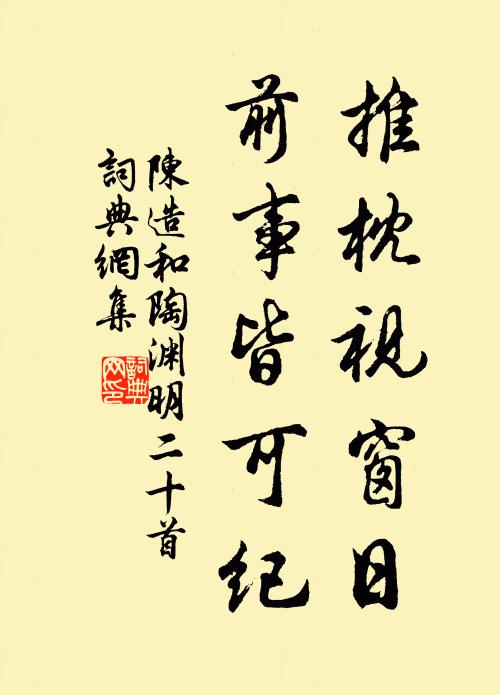 推枕視窗日
前事皆可紀
陳造和陶渊明二十首
詞典網集
詞典
网印